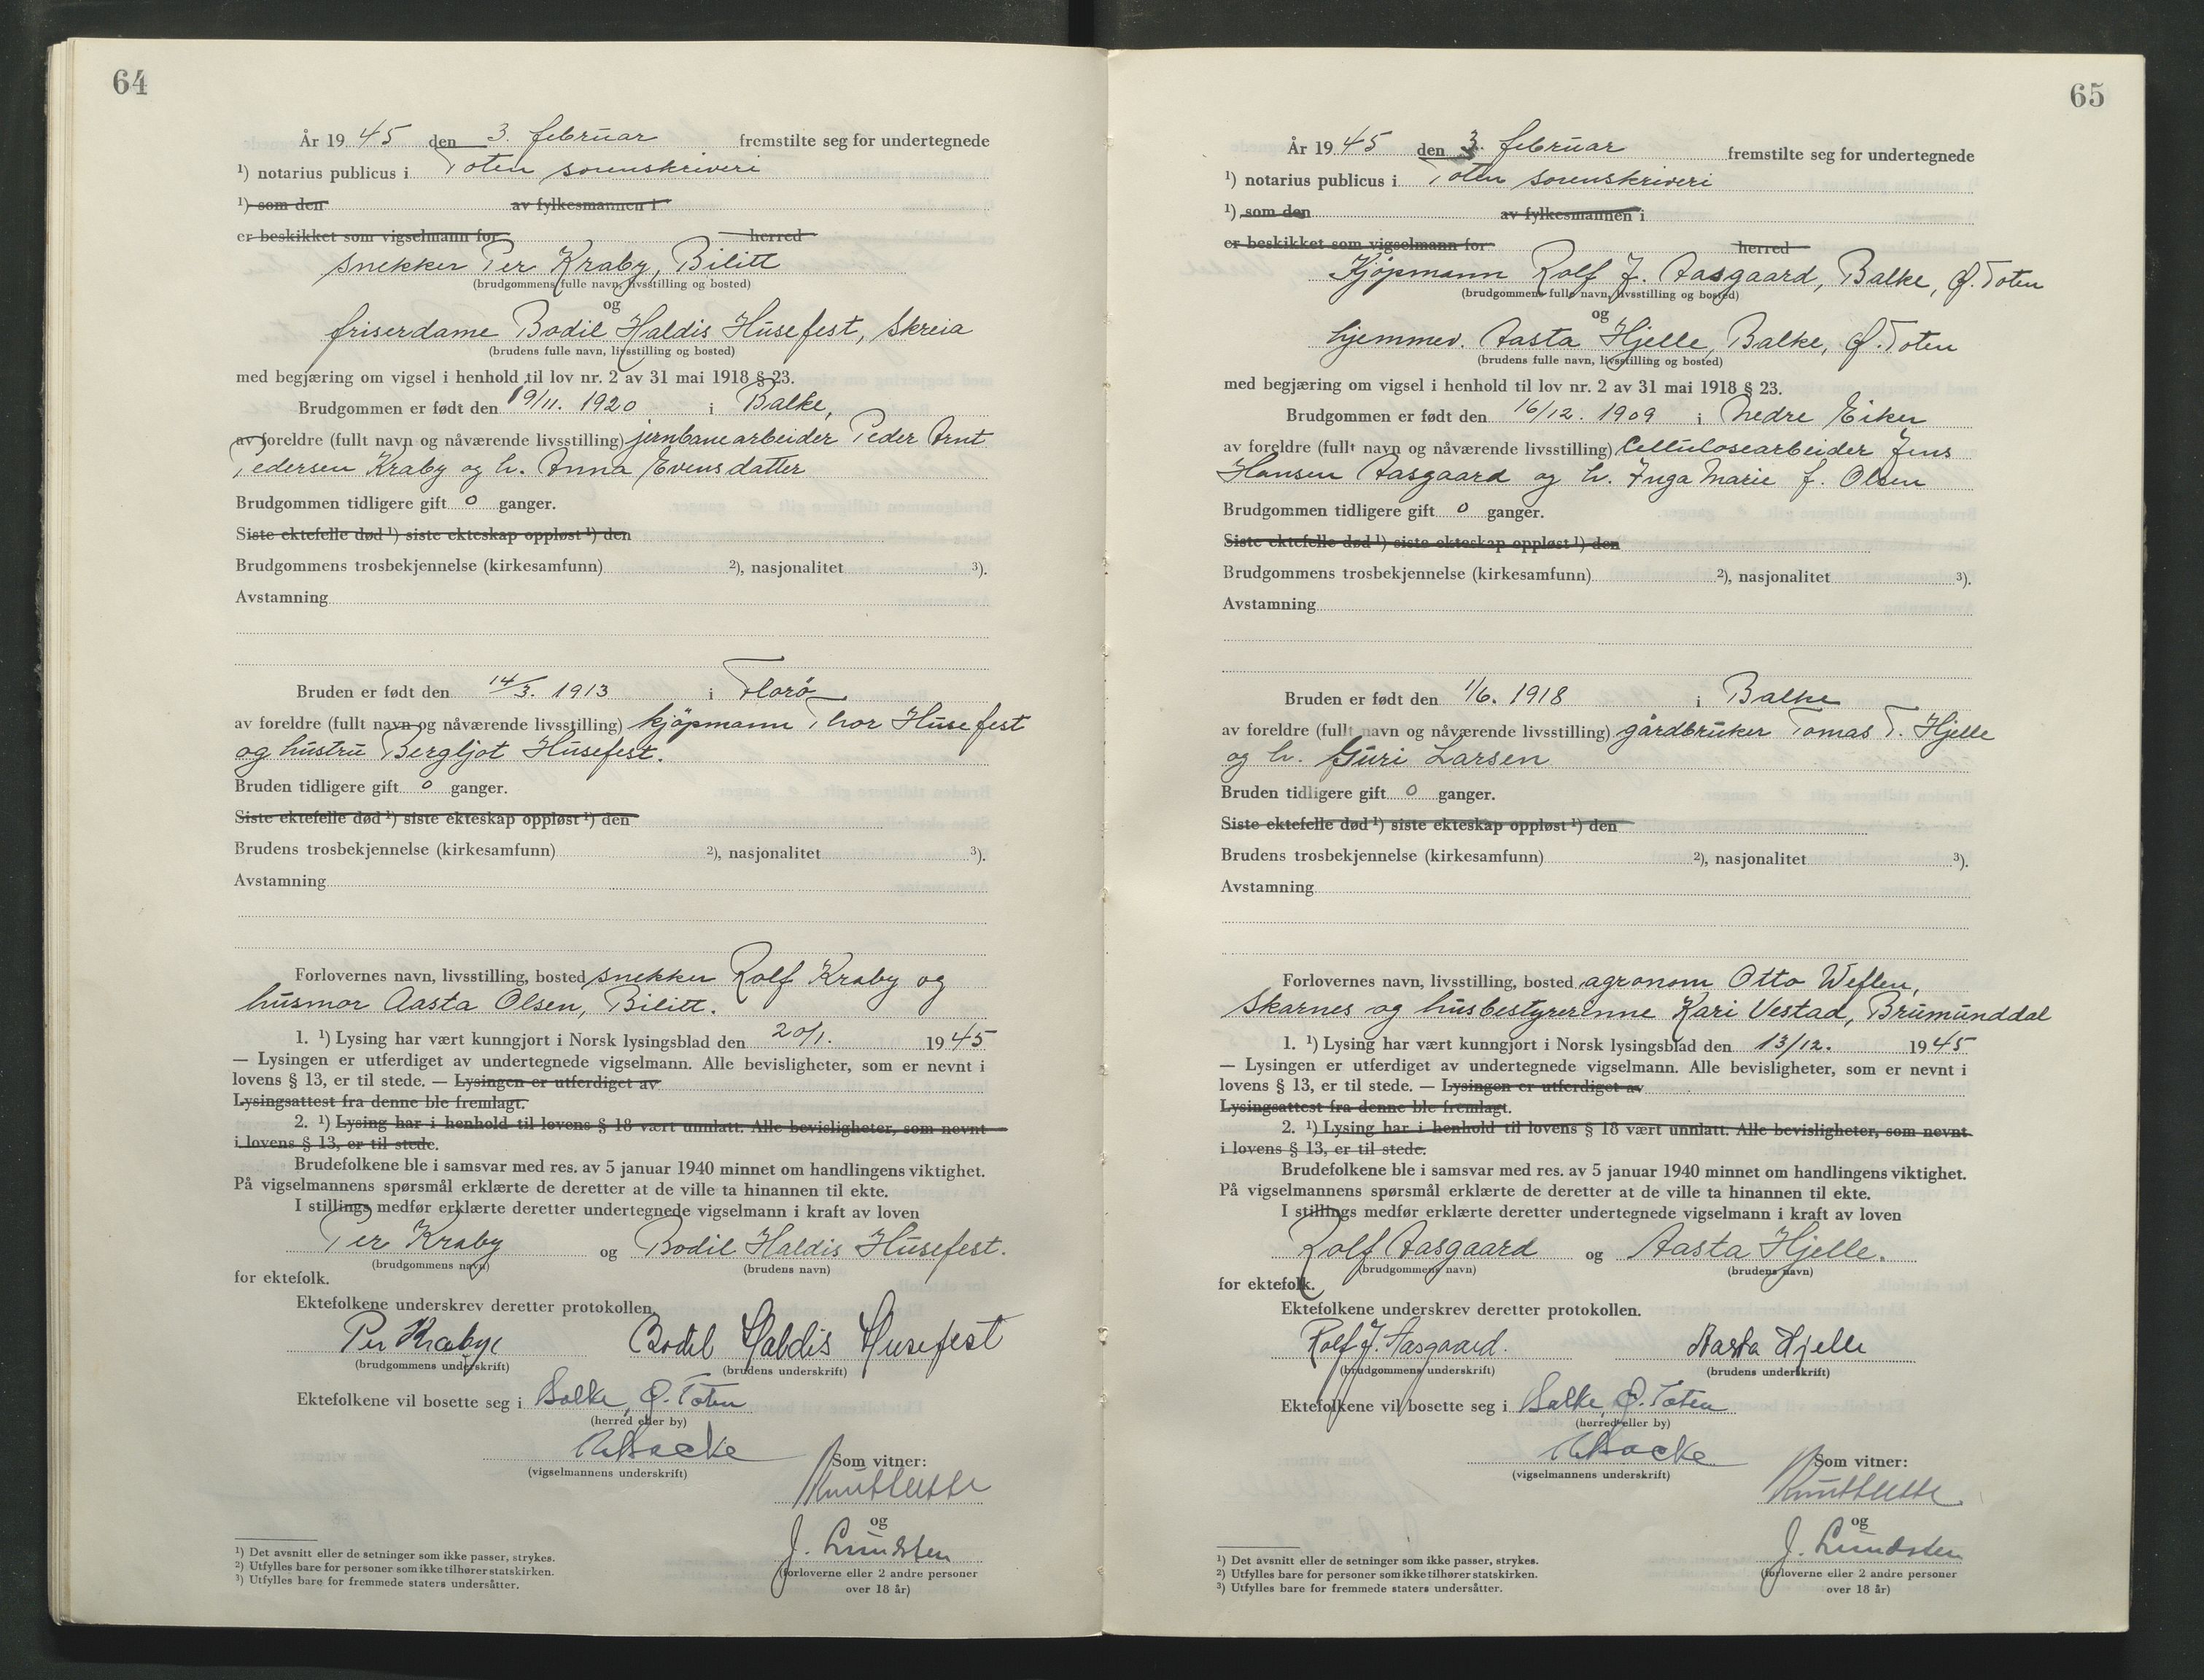 64
År 19 45 den 3. februar fremstilte seg for undertegnede
¹) notarius publicus i Toten sorenskriveri
¹) som den av fylkesmannen i
er beskikket som vigselmann for herred
snekker Per Kraby, Bilitt
(brudgommens fulle navn, livsstilling og bosted)
og
friserdame Bodil Haldis Husefest, Skreia
(brudens fulle navn, livsstilling og bosted)
med begjæring om vigsel i henhold til lov nr. 2 av 31 mai 1918 § 23.
Brudgommen er født den 19/11. 1920 i Balke,
av foreldre (fullt navn og nåværende livsstilling) jernbanearbeider Peder Arnt
Pedersen Kraby og h. Anna Evensdatter
Brudgommen tidligere gift 0 ganger.
Siste ektefelle død ¹) siste ekteskap oppløst ¹) den
Brudgommens trosbekjennelse (kirkesamfunn) ²), nasjonalitet ³).
Avstamning
Bruden er født den 14/3. 1913 i Florø
av foreldre (fullt navn og nåværende livsstilling) kjøpmann Thor Husefest
og hustru Bergljot Husefest.
Bruden tidligere gift 0 ganger.
Siste ektefelle død ¹) siste ekteskap oppløst ¹) den
Brudens trosbekjennelse (kirkesamfunn) ²), nasjonalitet ³).
Avstamning
Forlovernes navn, livsstilling, bosted snekker Rolf Kraby og
husmor Aasta Olsen, Bilitt.
1. ¹) Lysing har vært kunngjort i Norsk lysingsblad den 20/1. 19 45
— Lysingen er utferdiget av undertegnede vigselmann. Alle bevisligheter, som er nevnt i
lovens § 13, er til stede. — Lysingen er utferdiget av
Lysingsattest fra denne ble fremlagt.
2. ¹) Lysing har i henhold til lovens § 18 vært unnlatt. Alle bevisligheter, som nevnt
i lovens § 13, er til stede.
Brudefolkene ble i samsvar med res. av 5 januar 1940 minnet om handlingens viktighet.
På vigselmannens spørsmål erklærte de deretter at de ville ta hinannen til ekte.
I stillings medfør erklærte deretter undertegnede vigselmann i kraft av loven
Per Kraby og Bodil Haldis Husefest.
(brudgommens navn) (brudens navn)
for ektefolk.
Ektefolkene underskrev deretter protokollen.
Per Kraby Bodil Haldis Husefest
(brudgommens underskrift) (brudens underskrift)
Ektefolkene vil bosette seg i Balke, Ø. Toten
(herred eller by)
(vigselmannens underskrift)
Som vitner:
og
J. Lundsten
(forloverne eller 2 andre personer
over 18 år)
¹) Det avsnitt eller de setninger som ikke passer, strykes.
²) Utfylles bare for personer som ikke tilhører statskirken.
³) Utfylles bare for fremmede staters undersåtter.
65
År 19 45 den 3. februar fremstilte seg for undertegnede
¹) notarius publicus i Toten sorenskriveri
¹) som den av fylkesmannen i
er beskikket som vigselmann for herred
Kjøpmann Rolf J. Aasgaard, Balke, Ø. Toten
(brudgommens fulle navn, livsstilling og bosted)
og
hjemmev. Aasta Hjelle, Balke, Ø. Toten
(brudens fulle navn, livsstilling og bosted)
med begjæring om vigsel i henhold til lov nr. 2 av 31 mai 1918 § 23.
Brudgommen er født den 16/12. 1909 i Nedre Eiker
av foreldre (fullt navn og nåværende livsstilling) Cellulosearbeider Jens
Hansen Aasgaard og h. Inga Marie f. Olsen
Brudgommen tidligere gift 0 ganger.
Siste ektefelle død ¹) siste ekteskap oppløst ¹) den
Brudgommens trosbekjennelse (kirkesamfunn) ²), nasjonalitet ³).
Avstamning
Bruden er født den 1/6. 1918 i Balke
av foreldre (fullt navn og nåværende livsstilling) gårdbruker Tomas T. Hjelle
og h. Guri Larsen
Bruden tidligere gift 0 ganger.
Siste ektefelle død ¹) siste ekteskap oppløst ¹) den
Brudens trosbekjennelse (kirkesamfunn) ²), nasjonalitet ³).
Avstamning
Forlovernes navn, livsstilling, bosted agronom Otto Weflen,
Skarnes og husbestyrerinne Kari Vestad, Brumunddal
1. ¹) Lysing har vært kunngjort i Norsk lysingsblad den 13/12. 19 45
— Lysingen er utferdiget av undertegnede vigselmann. Alle bevisligheter, som er nevnt i
lovens § 13, er til stede. — Lysingen er utferdiget av
Lysingsattest fra denne ble fremlagt.
2. ¹) Lysing har i henhold til lovens § 18 vært unnlatt. Alle bevisligheter, som nevnt
i lovens § 13, er til stede.
Brudefolkene ble i samsvar med res. av 5 januar 1940 minnet om handlingens viktighet.
På vigselmannens spørsmål erklærte de deretter at de ville ta hinannen til ekte.
I stillings medfør erklærte deretter undertegnede vigselmann i kraft av loven
Rolf Aasgaard og Aasta Hjelle.
(brudgommens navn) (brudens navn)
for ektefolk.
Ektefolkene underskrev deretter protokollen.
Rolf J. Aasgaard. Aasta Hjelle
(brudgommens underskrift) (brudens underskrift)
Ektefolkene vil bosette seg i Balke, Ø. Toten
(herred eller by)
(vigselmannens underskrift)
Som vitner:
og
J. Lundsten
(forloverne eller 2 andre personer
over 18 år)
¹) Det avsnitt eller de setninger som ikke passer, strykes.
²) Utfylles bare for personer som ikke tilhører statskirken.
³) Utfylles bare for fremmede staters undersåtter.